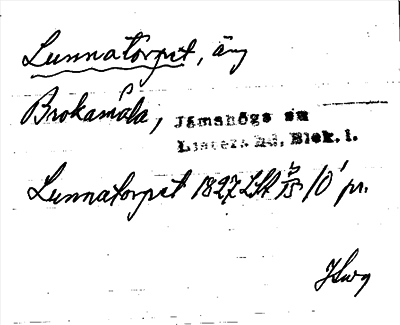 Lunnatorpet, äng
Brokamåla, Jämshögs sn
Listers hd, Blek. l.
Lunnatorpet 1827 LSA 10 pr.